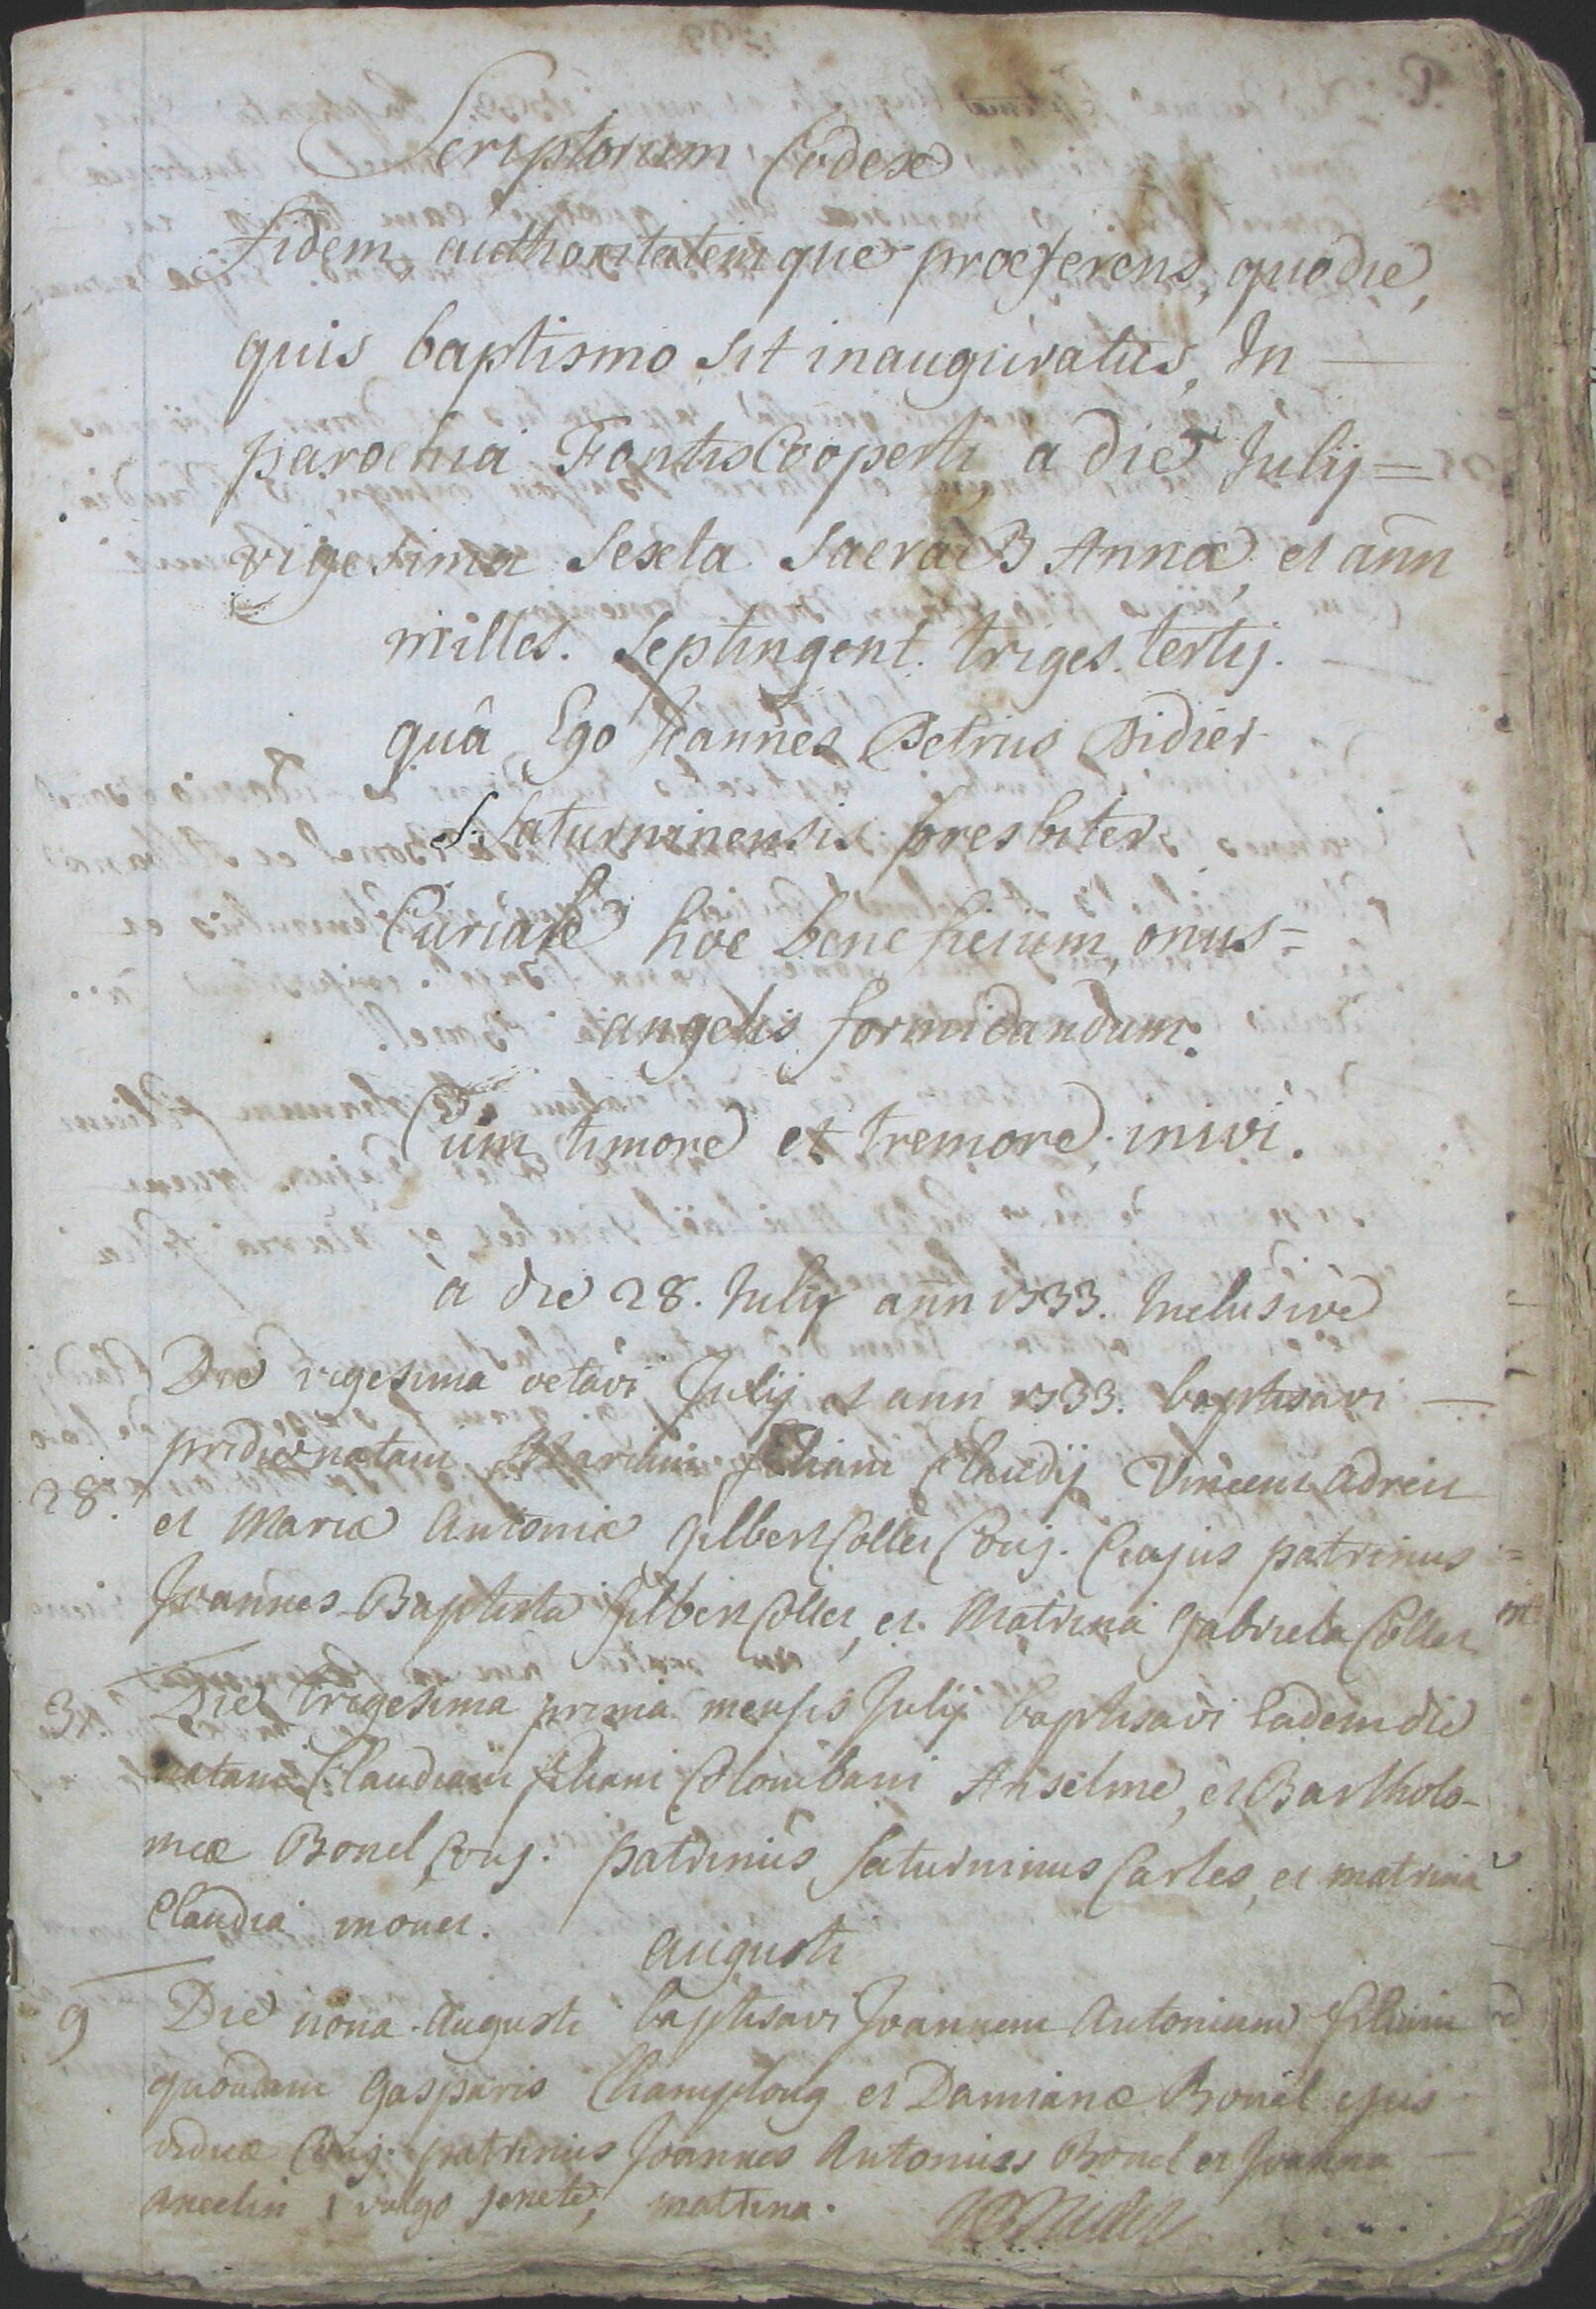 Scriptorum Codex
Fidem authoritatemque præferens, quo die,
quis baptismo sit inauguratus, In
parochia Fontis Cooperti, a die Julij =
vigesima Sexta Sacra B Annæ, et ann
milles. Septingent. triges. tertij.
quâ Ego Joannes Petrus Didier
S. Saturninensis presbiter
Curiale hoc beneficium, onus =
angelis formidandum.
Cum timore et tremore, inivi.
a die 28. Julij ann 1733. Inclusive
Die vigesima octavi Julij et ann 1733. baptisavi
28. pridie natam Mariam filiam Claudij Vincent adreit
et Mariæ Antoniæ gilbert Collet Conj. Cujus patrinus
Joannes Baptista gilbert Collet, et Matrina gabriela Collet
31 Die trigesima prima mensis Julij baptisavi Eadem die
natam Claudiam filiam Colombani Anselme, et Bartholo-
meæ Bonel Conj. patrinus Saturninus Carles, et matrina
Claudia monet.
augusti
9 Die nona Augusti baptisavi Joannem Antonium filium
quondam Gasparis Champlong et Damianæ Bonel ejus
viduæ Conj. patrinus Joannes Antonius Bonel et Joanna
Ancelin, vulgo jenete, matrina.